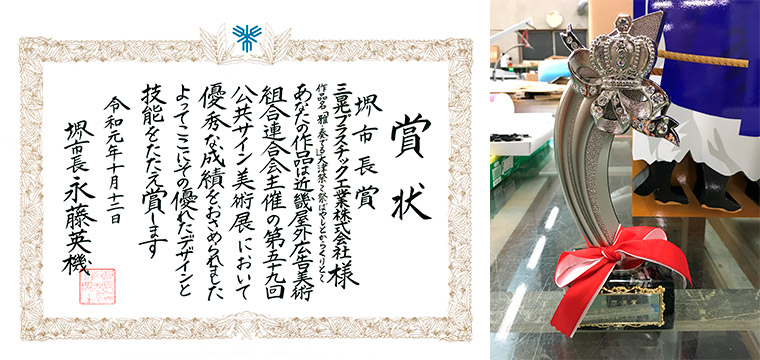 賞状
堺市長賞
三晃プラスチック工業株式会社様
あなたの作品は近畿屋外広告美術
組合連合会主催の第五十九回
公共サイン美術展において
優秀な成績をおさめられました
よってここにその優れたデザインと
技能をたたえ賞します
令和元年十月十二日
堺市長永藤英機